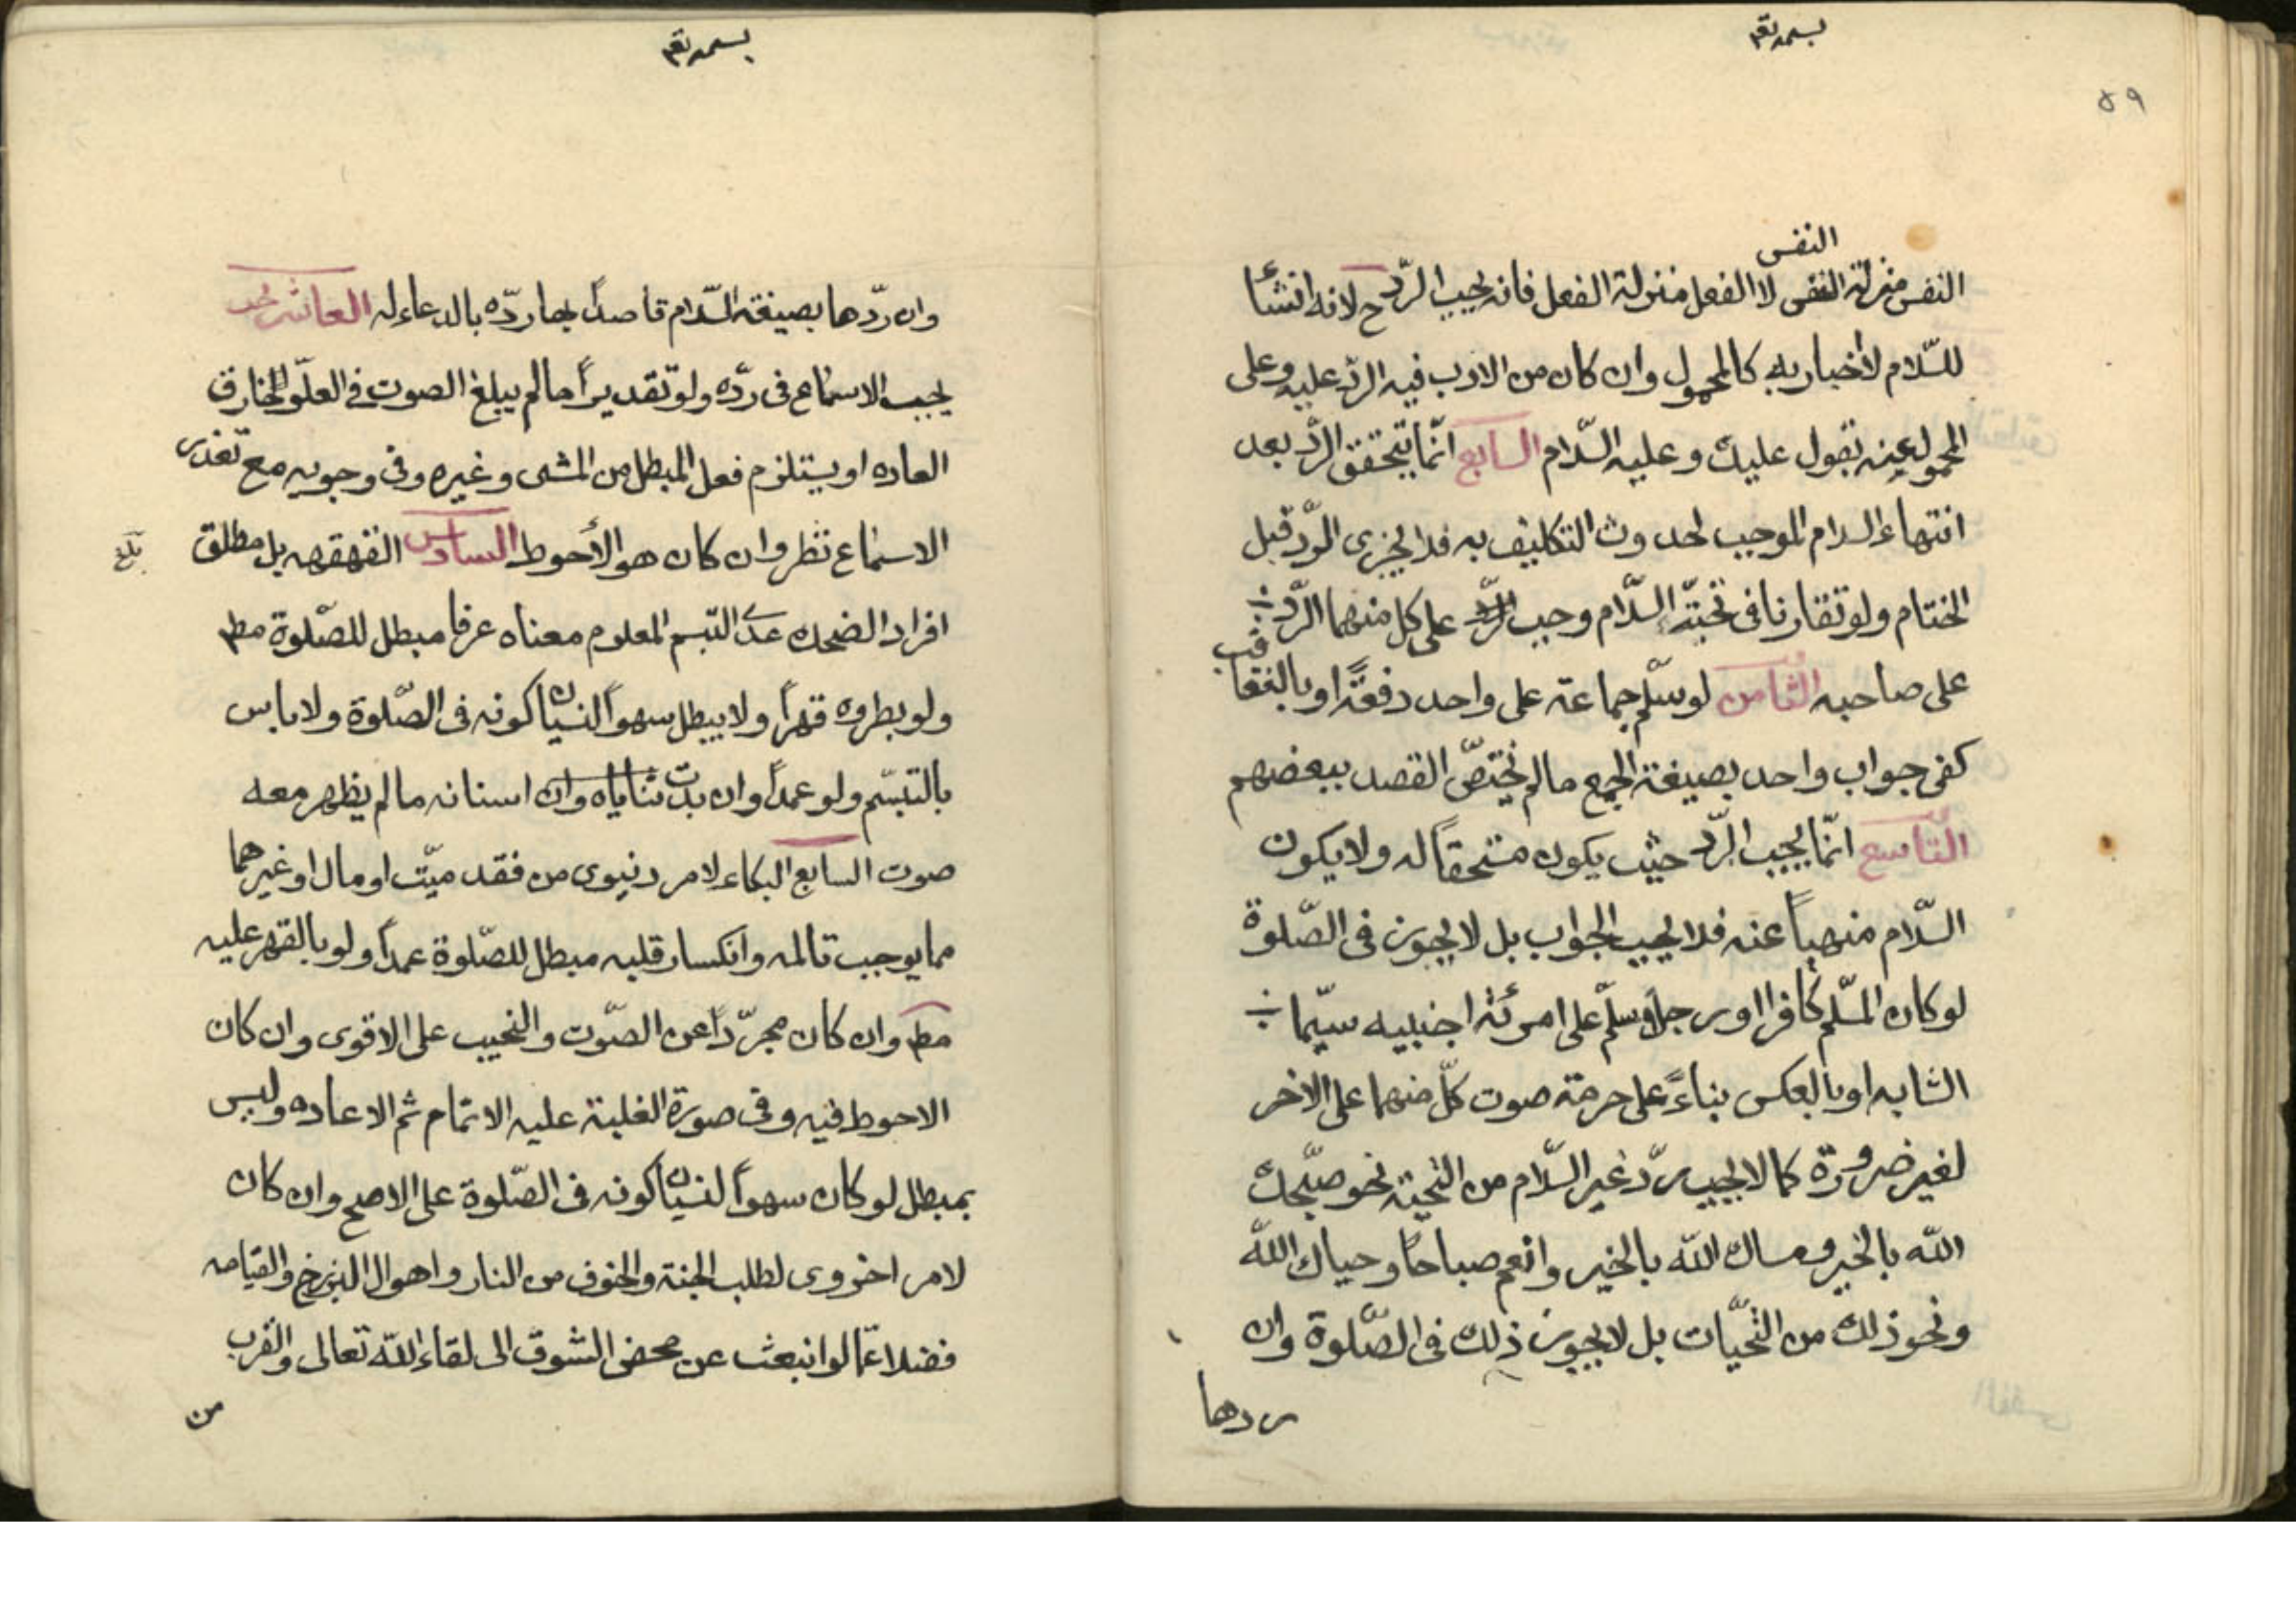 بسمه تعم
٥٩
النفس
النفس منزلة النفس لا الفعل منزلة الفعل فانه يجب الردّ ح لانه انشأ
للسّلام لا أخبار به كالمحمول وان كان من الادب فيه الردّ عليه وعلى
المحمول عنه تقول عليك وعليه السّلام السابع انّما يتحقق الردّ بعد
انتهاء السلام الموجب لحدوث التكليف به فلا يجزى الردّ قبل
الختام ولو تقارنا فى تحيّة السّلام وجب الردّ على كل منهما الردّ
على صاحبه الثامن لو سلّم جماعة على واحد دفعةً او بالتعاقب
كفى جواب واحد بصيغة الجمع مالم يختصّ القصد ببعضهم
التّاسع انّما يجب الردّ حيث يكون مستحقاً له ولا يكون
السّلام منهياً عنه فلا يجب الجواب بل لا يجوز فى الصّلوة
لو كان المسّلم كافرا او رجل وسلّم على امرئة اجنبيه سيّما
الشابه او بالعكس بناءً على حرمة صوت كلّ منهما على الاخر
لغير ضرورة كما لا يجب ردّ غير السّلام من التحيّة نحو صبّحك
اللّه بالخير ومساك اللّه بالخير وانعم صباحاً وحياك اللّه
ونحو ذلك من التحيّات بل لا يجوز ذلك فى الصّلوة وان
ردها
بسمه تعم
وان ردّها بصيغة السّلام قاصداً بها ردّه بالدعاء له العاشر
يجب الاسماع فى ردّه ولو تقديراً ما لم يبلغ الصوت فى العلّو الخارق
العاده او يستلزم فعل المبطل من المشى وغيره وفى وجوبه مع تعذر
الاسماع نظر وان كان هو الأحوط السادس القهقهه بل مطلق
بلغ
افراد الضحك عدى التبسم المعلوم معناه عرفا مبطل للصّلوة مطم
ولو بطروه قهراً ولا يبطل سهواً لنسيان كونه فى الصّلوة ولا باس
بالتبسّم ولو عمداً وان بدت ثناياه وان اسنانه مالم يظهر معه
صوت السابع البكاء لامر دنيوى من فقد ميّت او مال او غيرهما
مما يوجب تالمه وانكسار قلبه مبطل للصّلوة عمداً ولو بالقهر عليه
مطم وان كان مجرّداً عن الصّوت والنحيب على الاقوى وان كان
الاحوط فيه وفى صورة الغلبة عليه الاتمام ثم الاعاده وليس
بمبطل لو كان سهواً لنسيان كونه فى الصّلوة على الاصح وان كان
لامر اخروى لطلب الجنة والخوف من النار واهوال البرزخ والقيامه
فضلا عمّا لو انبعث عن محض الشوق الى لقاء اللّه تعالى والقرب
من